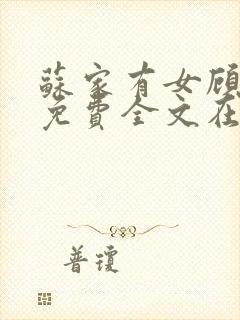 蘇家有女顾
免費全文在
普瓊